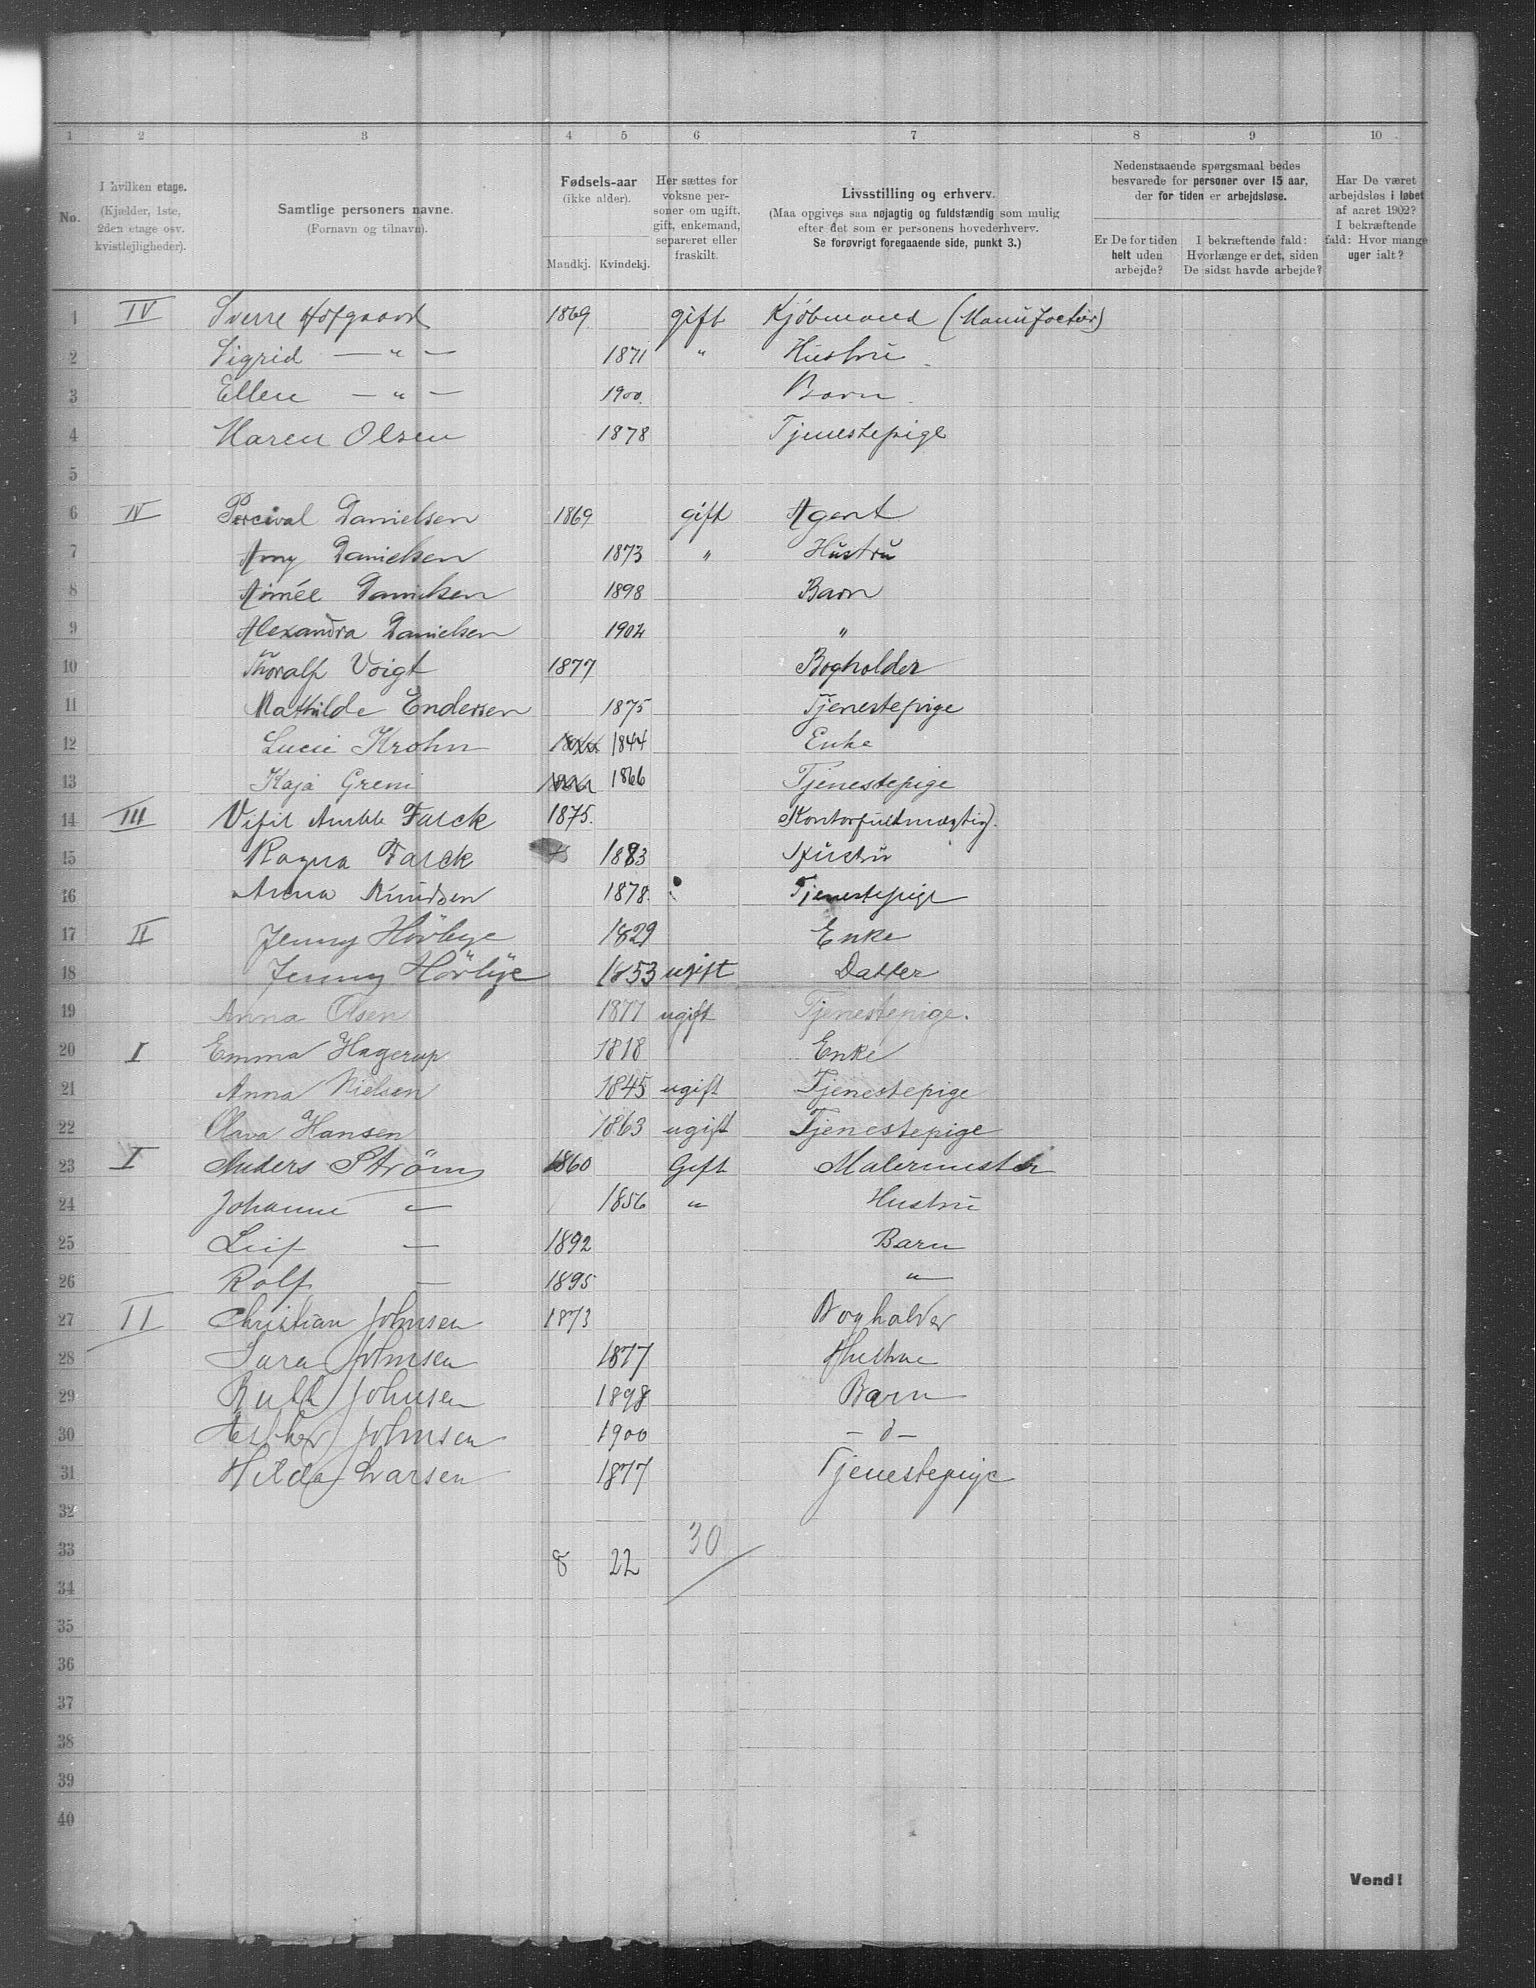 1 2 3 4 5 6 7 8 9 10
No.
I hvilken etage.
(Kjælder, 1ste,
2den etage osv.
kvistlejligheder).
Samtlige personers navne.
(Fornavn og tilnavn).
Fødsels-aar
(ikke alder).
Mandkj. Kvindekj.
Her sættes for
voksne per-
soner om ugift,
gift, enkemand,
separeret eller
fraskilt.
Livsstilling og erhverv.
(Maa opgives saa nøjagtig og fuldstændig som mulig
efter det som er personens hovederhverv.
Se forøvrigt foregaaende side, punkt 3.)
Nedenstaaende spørgsmaal bedes
besvarede for personer over 15 aar,
der for tiden er arbejdsløse.
Er De for tiden
helt uden
arbejde?
I bekræftende fald:
Hvorlænge er det, siden
De sidst havde arbejde?
Har De været
arbejdsløs i løbet
af aaret 1902?
I bekræftende
fald: Hvor mange
uger ialt?
1 IV Sverre Hofgaard 1869 gift Kjöbmand (Manufactur)
2 Sigrid — " — 1871 " Hustru
3 Ellen — " — 1900 Barn
4 Maren Olsen 1878 Tjenestepige
5
6 IV Percival Danielsen 1869 gift Agent
7 Amy Danielsen 1873 " Hustru
8 Aimée Danielsen 1898 Barn
9 Alexandra Danielsen 1902 "
10 Thoralf Voigt 1877 Bogholder
11 Mathilde Endersen 1875 Tjenestepige
12 Lucie Krohn 1844 Enke
13 Kaja Greni 1866 Tjenestepige
14 III Vifil Falck 1875. Kontorfuldmægtig.
15 Ragna Falck 1883 Hustru
16 Anna Knudsen 1878. Tjenestepige
17 II Jenny Hörbye 1829 Enke
18 Jenny Hörbye 1853 ugift Datter
19 Anna Olsen 1877 ugift Tjenestepige.
20 I Emma Hagerup 1818 Enke
21 Anna Nielsen 1845 ugift Tjenestepige
22 Olava Hansen 1863 ugift Tjenestepige
23 I Anders Ström 1860 Gift Malermester
24 Johanne — 1856 " Hustru
25 Leif — 1892 Barn
26 Rolf — 1895 "
27 II Christian Johnsen 1873 Bogholder
28 Sara Johnsen 1877 Hustrue
29 Ruth Johnsen 1898 Barn
30 Esther Johnsen 1900 — d —
31 Hilda Larsen 1877 Tjenestepige
32
33 8 22 30
34
35
36
37
38
39
40
Vend!